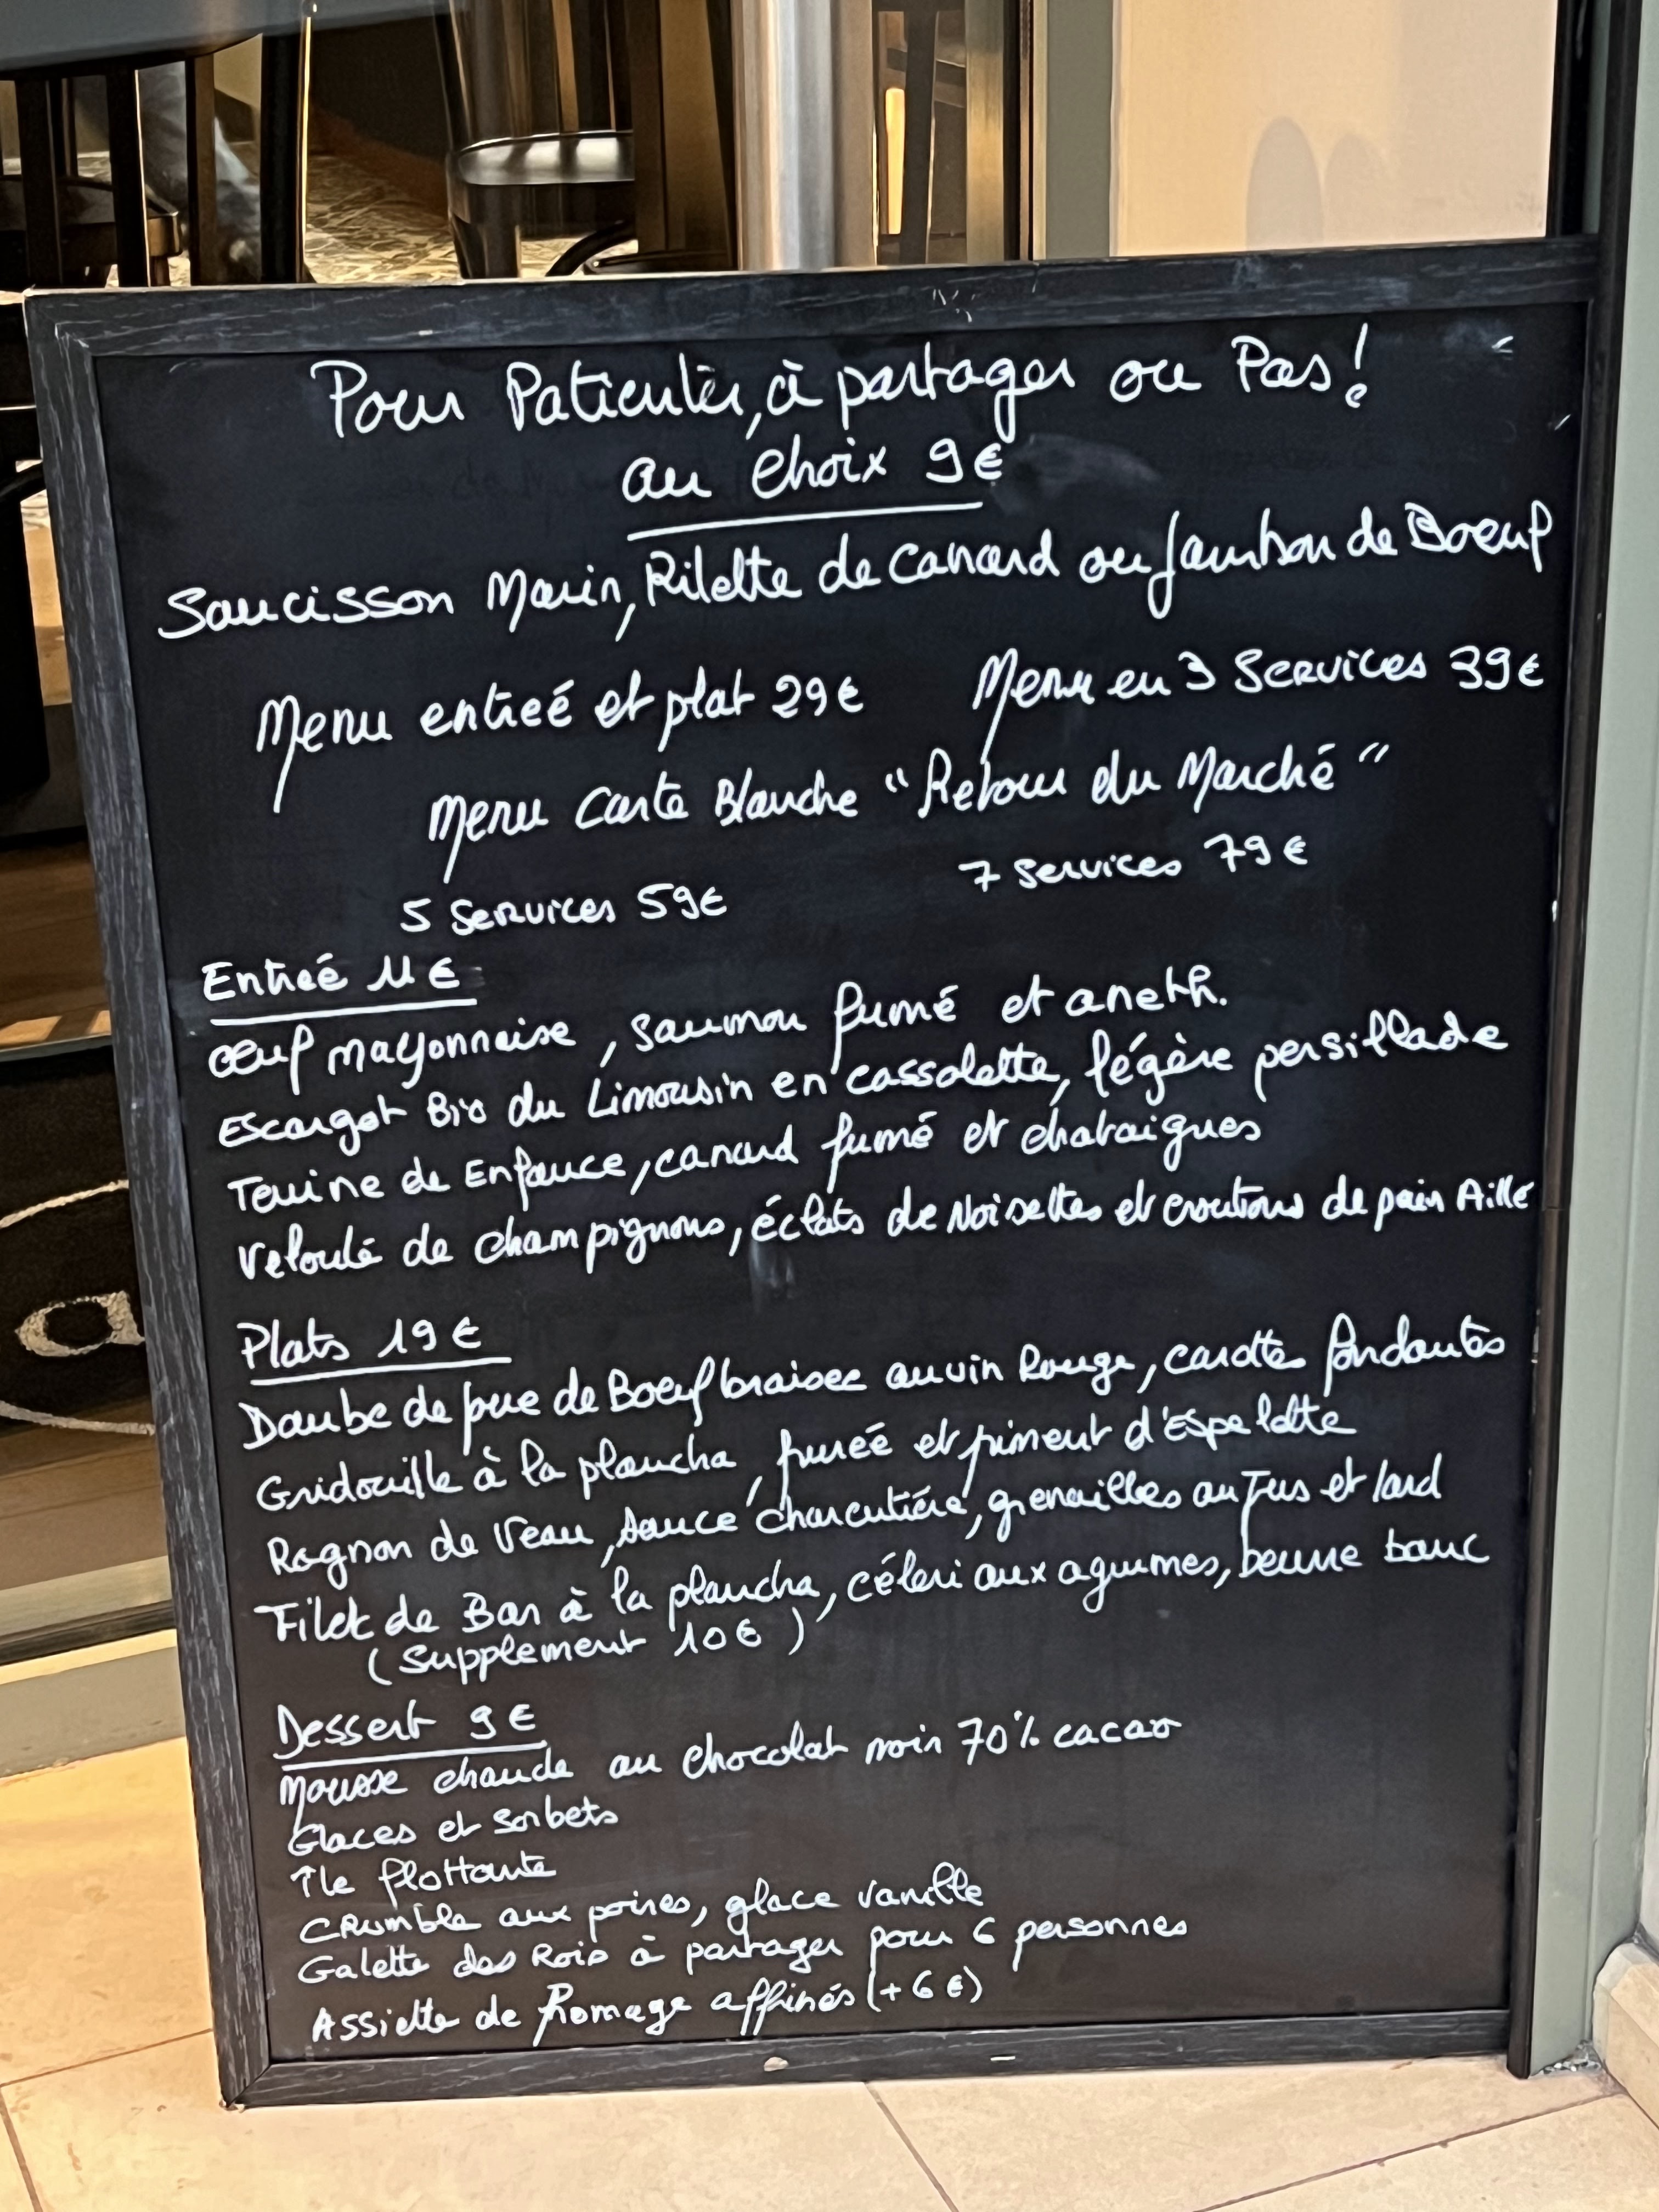 Pour Patienter, à partager ou Pas!
au choix 9€
Saucisson Marin, Rilette de Canard ou Jambon de Boeuf
Menu entreé et plat 29€ Menu en 3 Services 39€
Menu Carte Blanche "Retour du Marché"
5 Services 59€ 7 Services 79€
Entreé 11€
Œuf mayonnaise, Saumon fumé et aneth.
Escargot Bio du Limousin en cassolette, légère persillade
Terrine de Enfance, canard fumé et chataignes
Velouté de champignons, éclats de Noisettes et croutons de pain Aillé
Plats 19€
Daube de joue de Boeuf braisee au vin Rouge, carotte fondantes
Gridouille à la plancha, pureé et piment d'Espelette
Rognon de Veau, sauce charcutière, grenailles au Jus et lard
Filet de Bar à la plancha, céleri aux agrumes, beurre banc
(Supplement 10€)
Dessert 9€
Mousse chaude au chocolat noir 70% cacao
Glaces et Sorbets
île flottante
Crumble aux poires, glace vanille
Galette des Rois à partager pour 6 personnes
Assiette de fromage affinés (+6€)